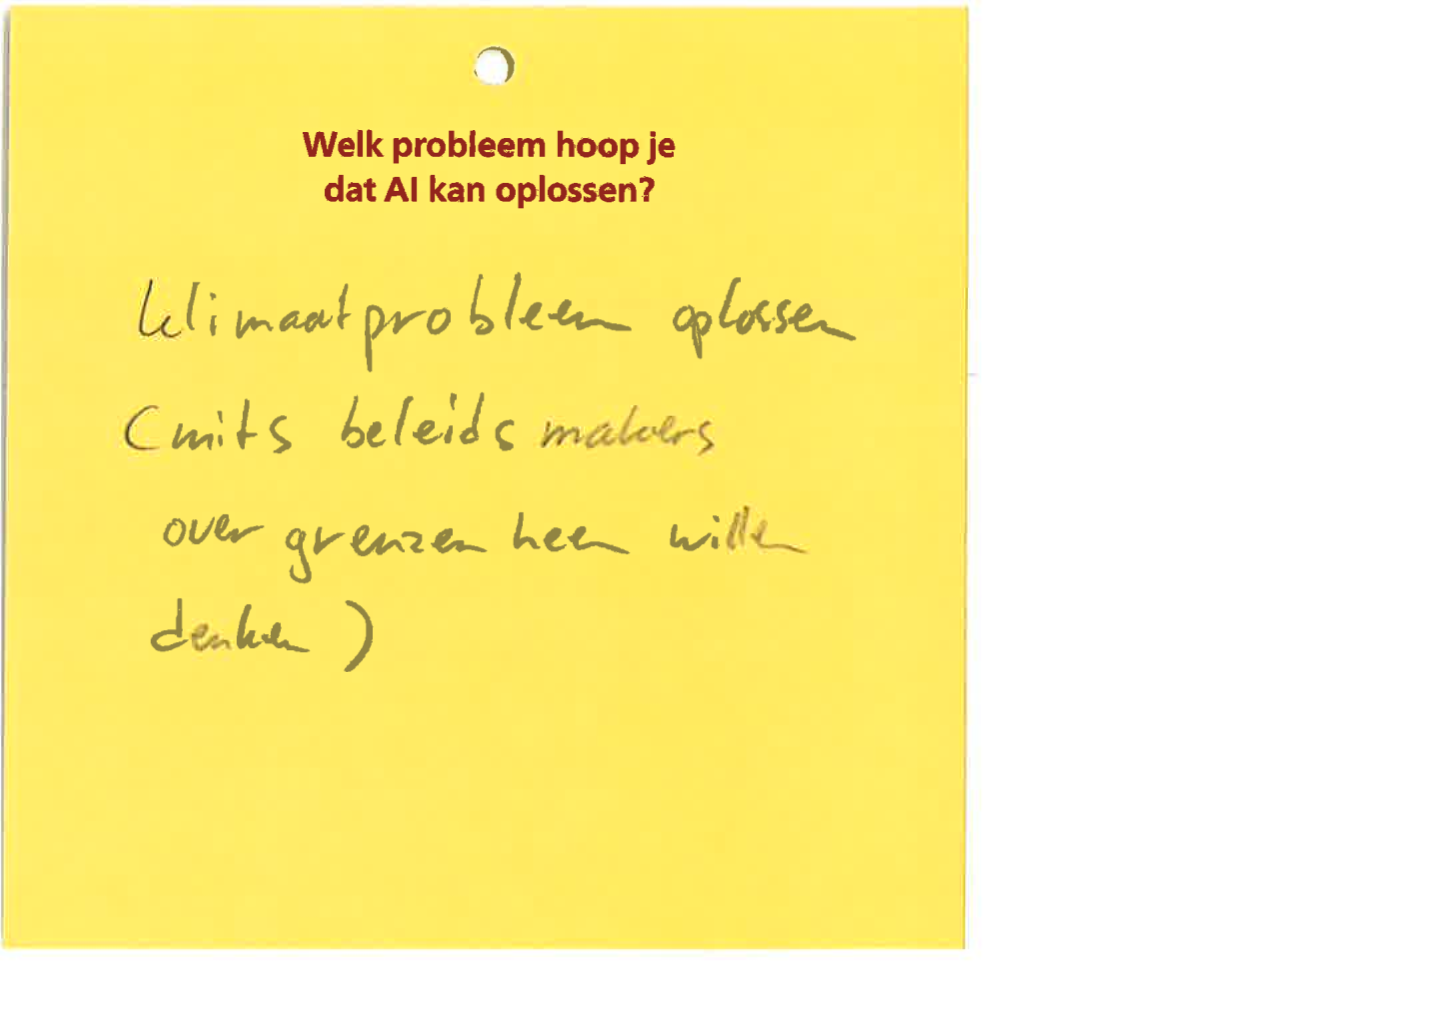 Welk probleem hoop je
dat AI kan oplossen?
klimaatprobleem oplossen
(mits beleidsmakers
over grenzen heen willen
denken)